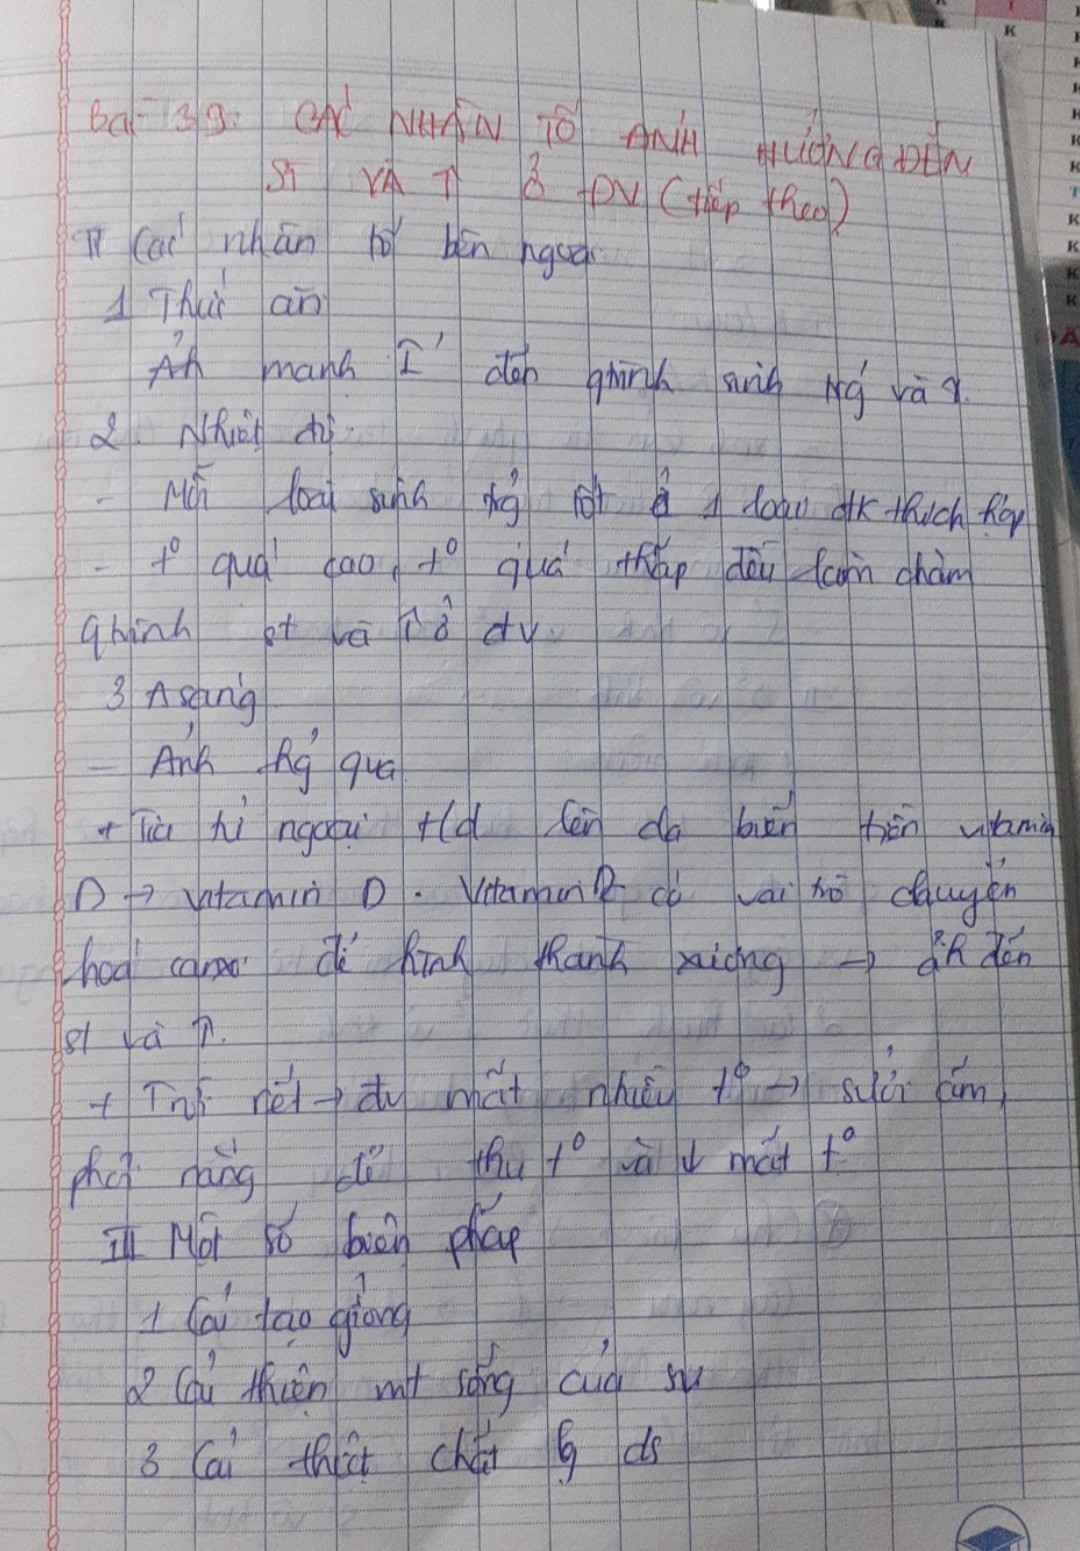 Bài 39: CÁC NHÂN TỐ ẢNH HƯỞNG ĐẾN
ST VÀ ↑ Ở ĐV (tiếp theo)
II Các nhân tố bên ngoài
1 Thức ăn
Ảh mạnh I' đến qtrình sinh và ↑.
2. Nhiệt độ.
- Mỗi loài sinh tốt ở 1 loại đk thích hợp
- t° quá cao, t° quá thấp đều làm chậm
qtrình st và ↑ ở đv
3 Asáng
- Ảnh hg qua
+ Tia tử ngoại t/d lên da biến tiền vitamin
D → vitamin D. Vitamin D có vai trò chuyển
hoá canxi để hình thành xương → ảh đến
st và ↑.
+ rét → đv mất nhiều t° → sưởi ấm,
phơi nắng để thu t° và ↓ mất t°
III Một số biện pháp
1 Cải tạo giống
2 Cải thiện mt sống của
3 Cải thiệt chất lg ds